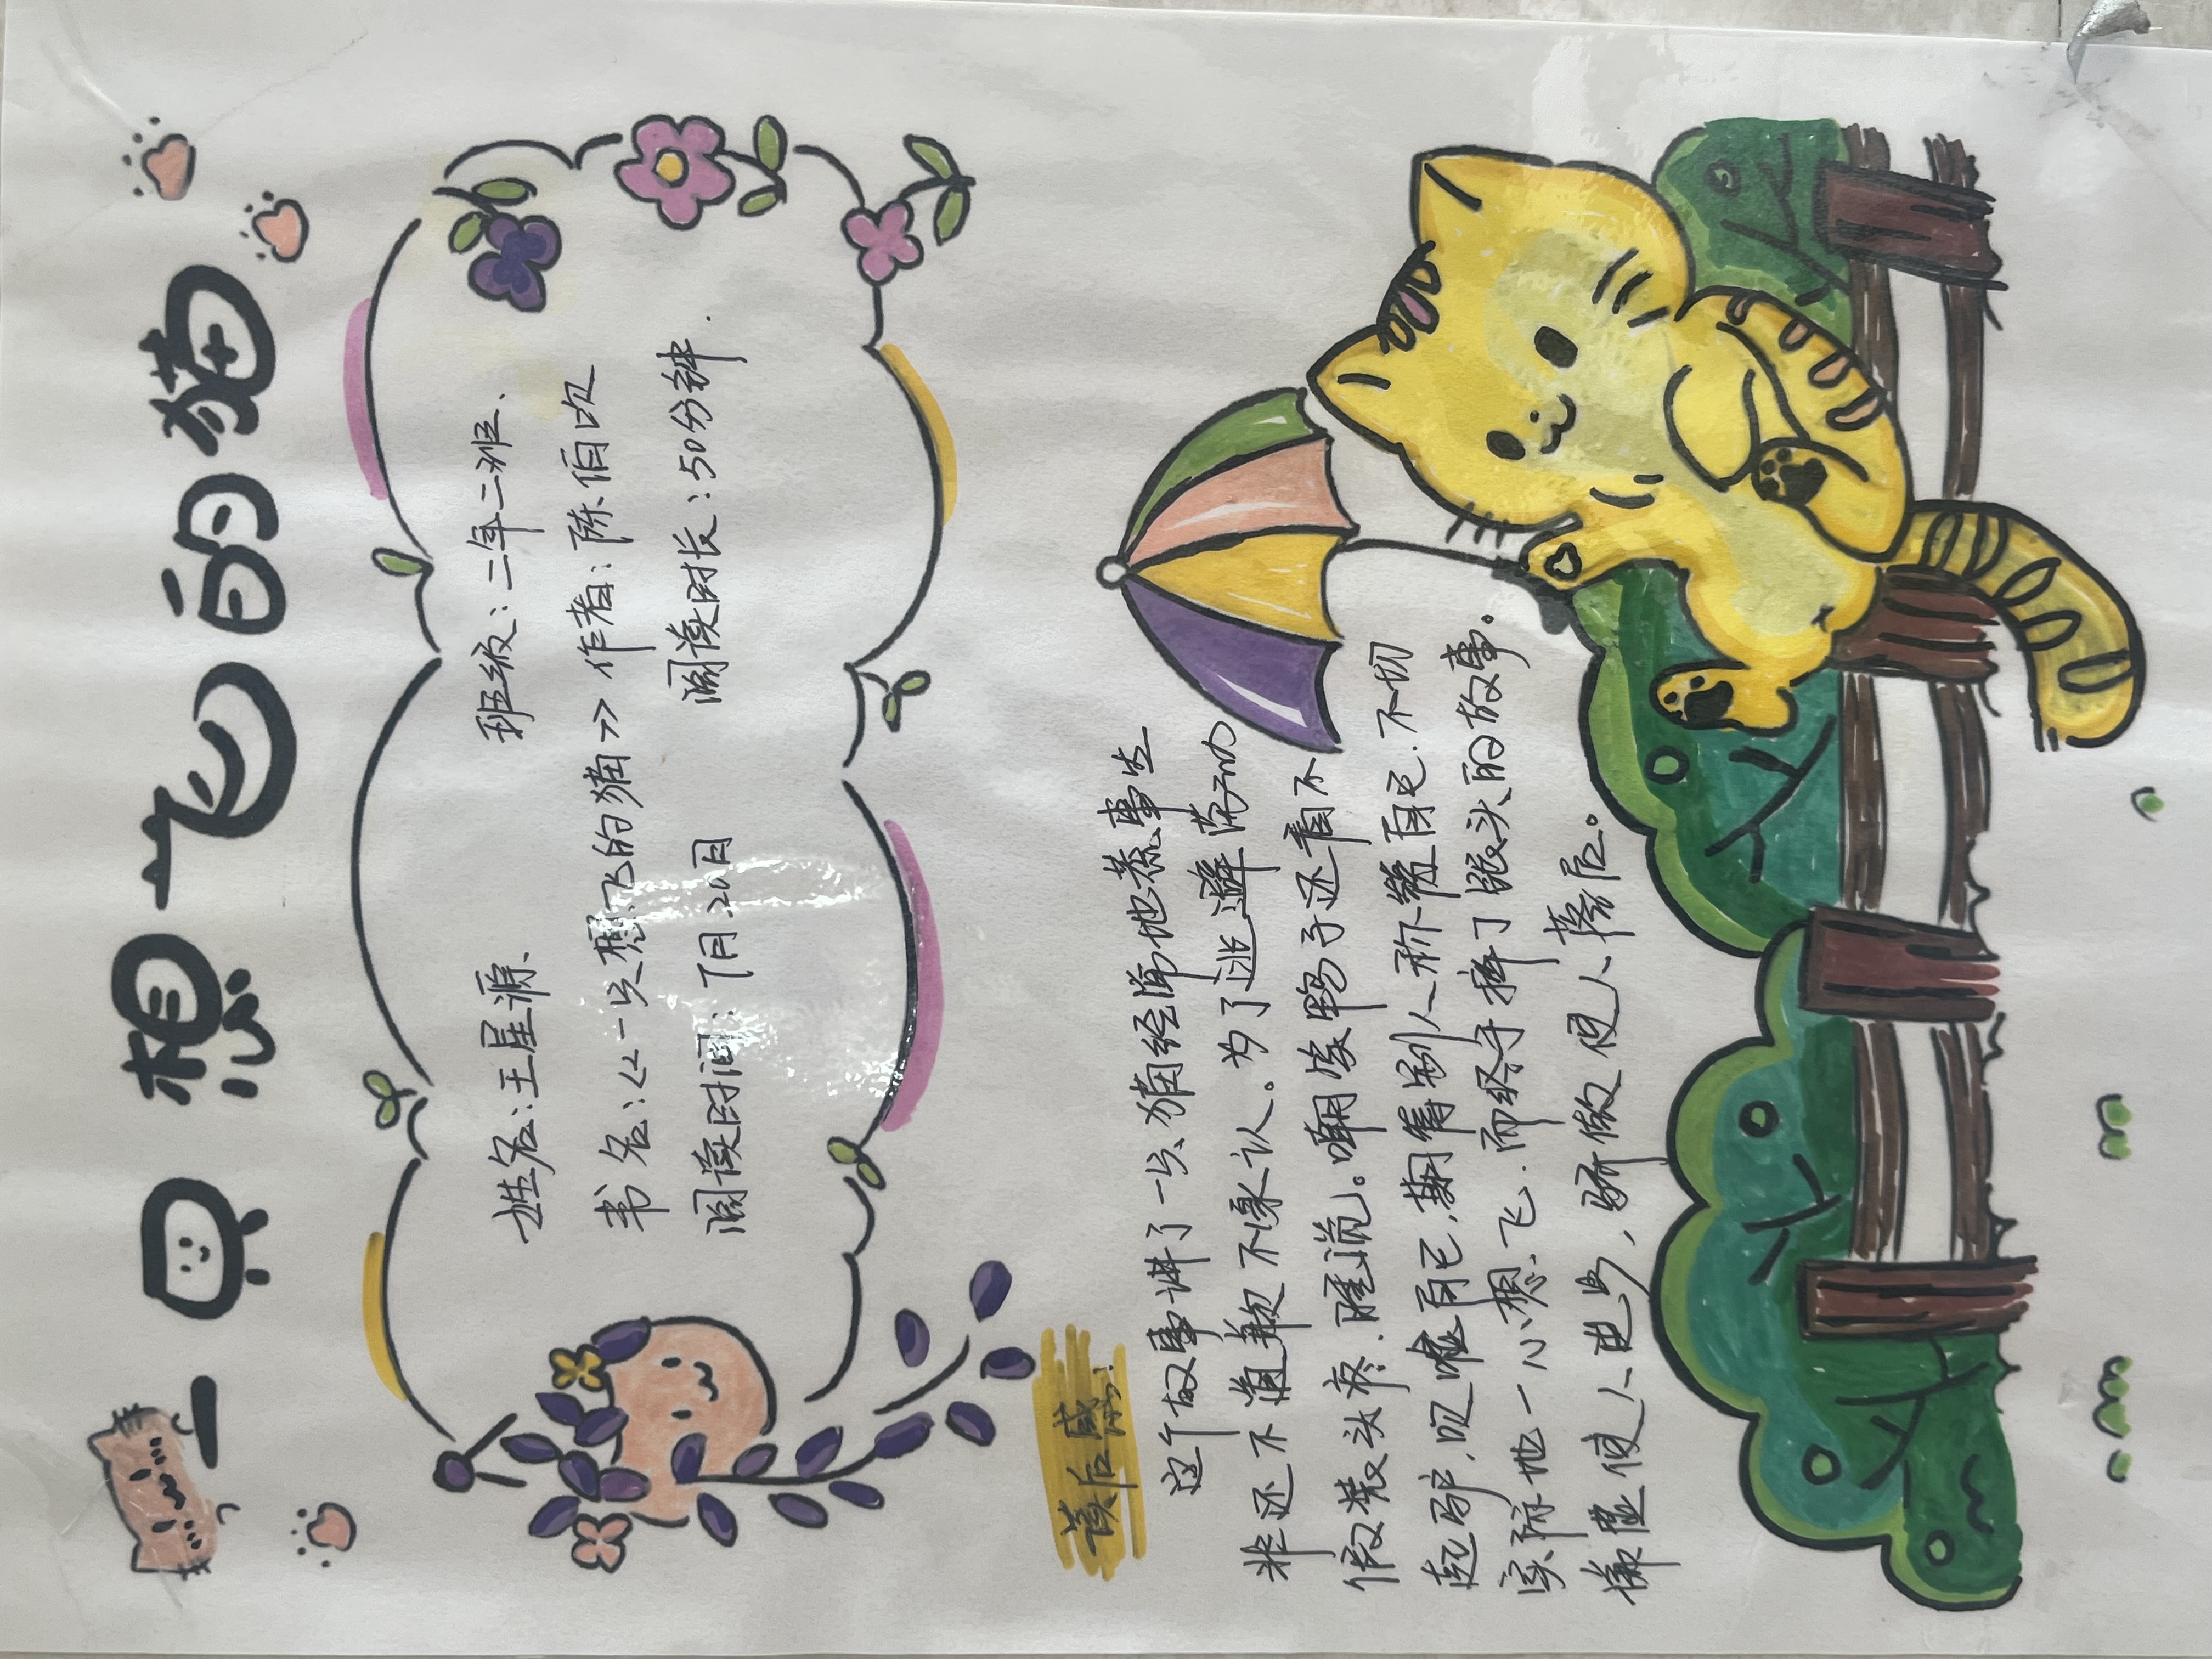 一只想飞的猫
姓名:王星源、 班级:二年二班、
书名:<<一只想飞的猫>> 作者:陈伯吹
阅读时间:7月20日 阅读时长:50分钟.
读后感:
这个故事讲了一只猫经常地惹事生
非还不道歉不承认。为了逃避劳动
假装头疼.睡觉。嘲笑鸭子还看不
起驴,吹嘘自己,期得别人称赞自己.不切
实际地一心想飞.而终于摔了跟头的故事。
谦虚使人进步,骄傲使人落后。